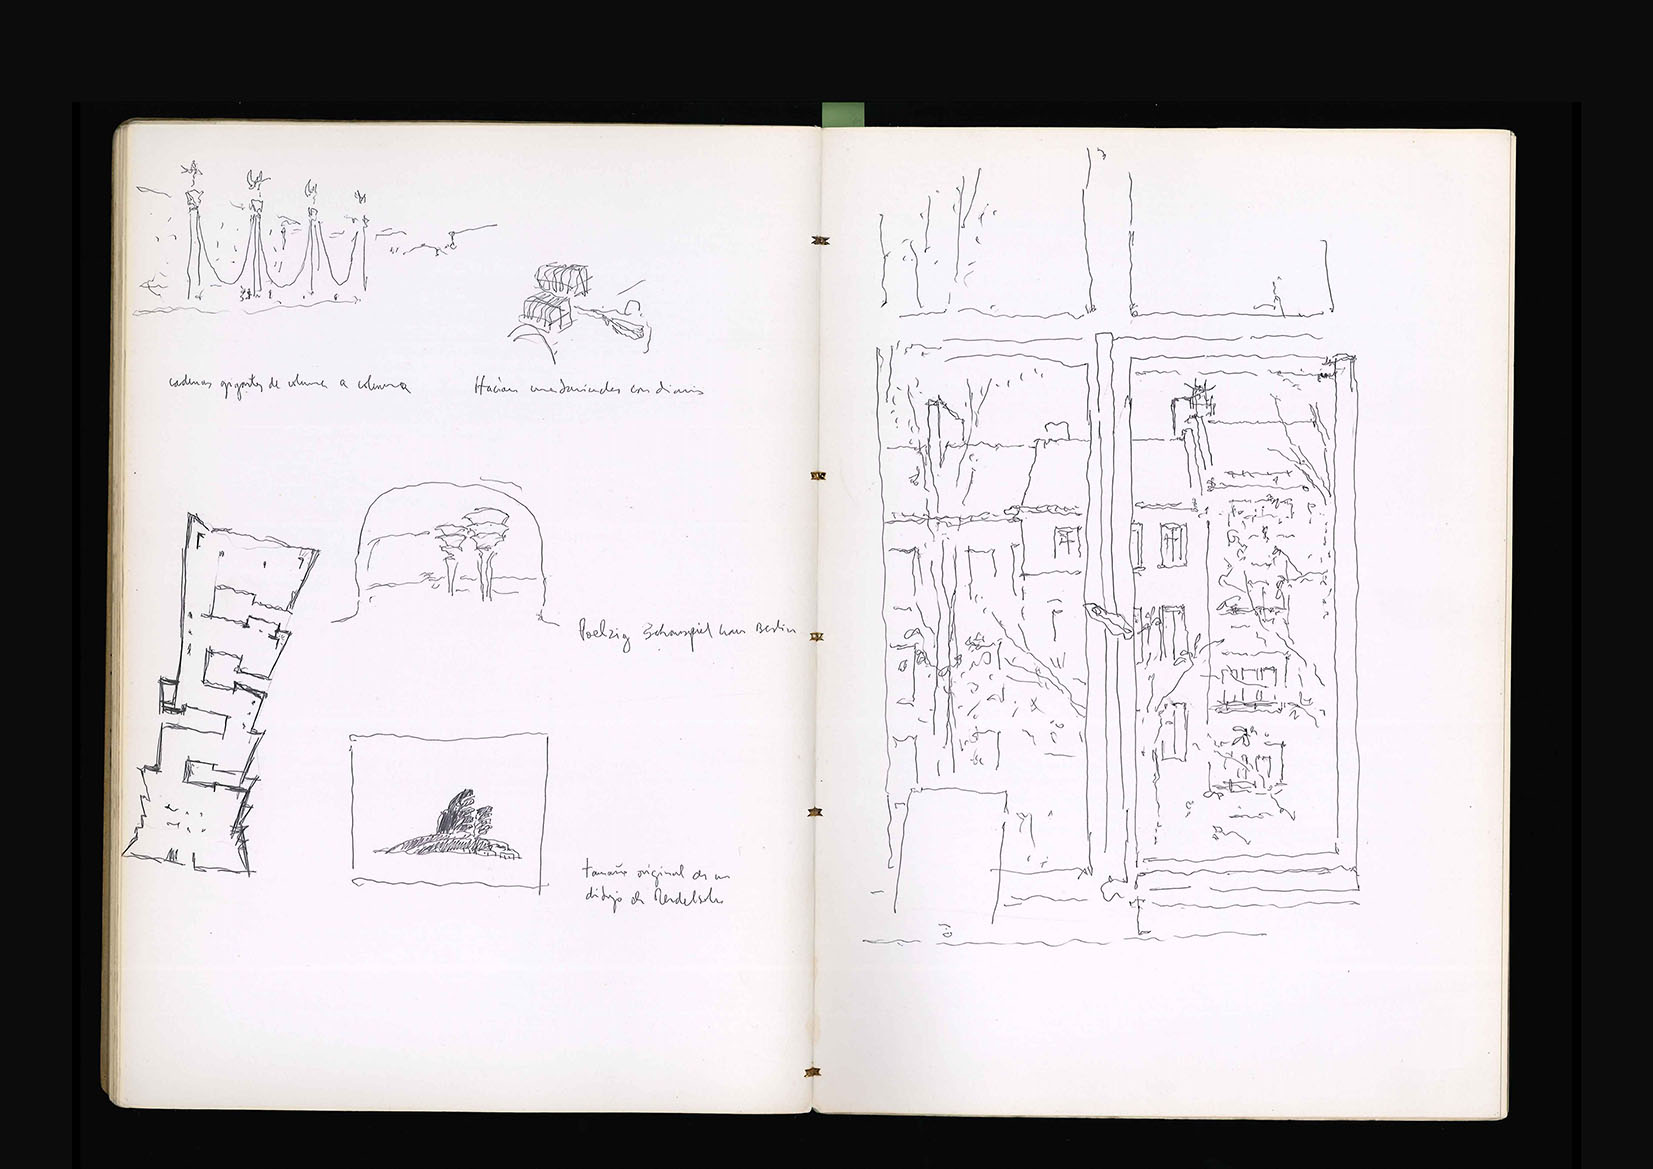 cadenas gigantes de columna a columna
Hacían con diarios
Poelzig Schauspiel haus Berlin
tamaño original de un
dibujo de Mendelsohn